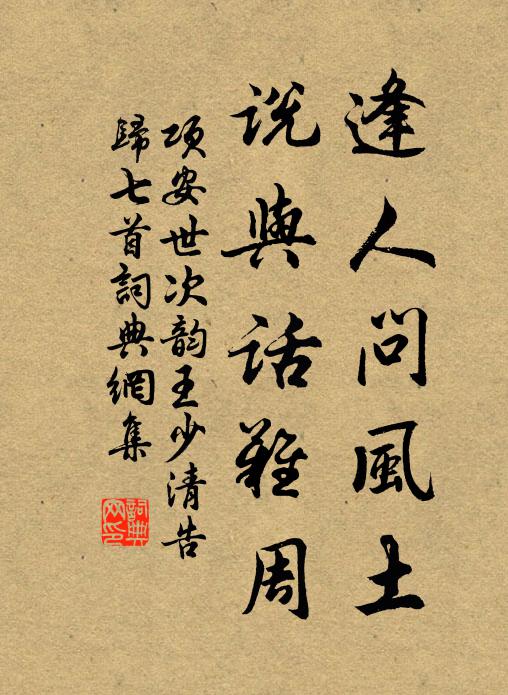 逢人問風土
説與話難周
項安世次韵王少清告
歸七首詞典網集
詞典网印